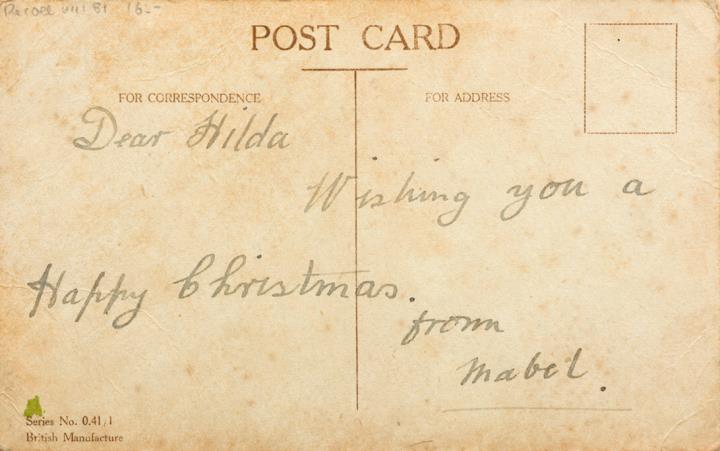 16.-
POST CARD
FOR CORRESPONDENCE
FOR ADDRESS
Dear Hilda
Wishing you a
Happy Christmas.
from
Mabel.
Series No. 0.41/1
British Manufacture